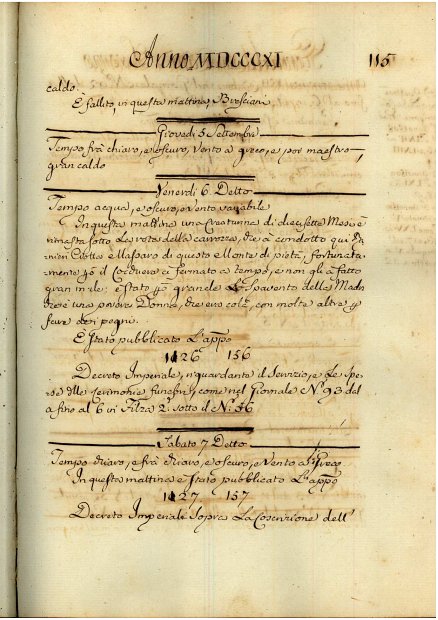 Anno MDCCCXI 115
caldo.
È fallito, in questa mattina, Bresciani
Giovedi 5 Settembre
Tempo frà chiaro, e oscuro, Vento a greco, e poi maestro,
gran caldo
Venerdi 6. Detto
Tempo acqua, e oscuro, e vento variabile
In questa mattina una Creatunna di diecisette Mesi è
rimasta sotto Le rota della carrozza, che à condotto qui
nieri Pilotto e Massaro di questo Monte di pietà, fortunata-
mente il Cocchiere si fermato a tempo, e non gli à fatto
gran male; è stato grande Lo Spavento della Madre
che è una povara Donna, che era colà, con molte altre
fare dei pegni.
È Stato pubblicato L'app.o
1426 156
Decreto Imperiale, riguardante il Servizio, e Le Spe-
se delle Cerimonie funebri, come nel Giornale N.o 93 del
a fino al 6 in Filza 2.a sotto il N.o 56
Sabato 7 Detto
Tempo chiaro, e frà chiaro, e oscuro, e Vento a Greco
In questa mattina è Stato pubblicato L'app.o
1427 157
Decreto Imperiale Sopra La Coscrizione dell'